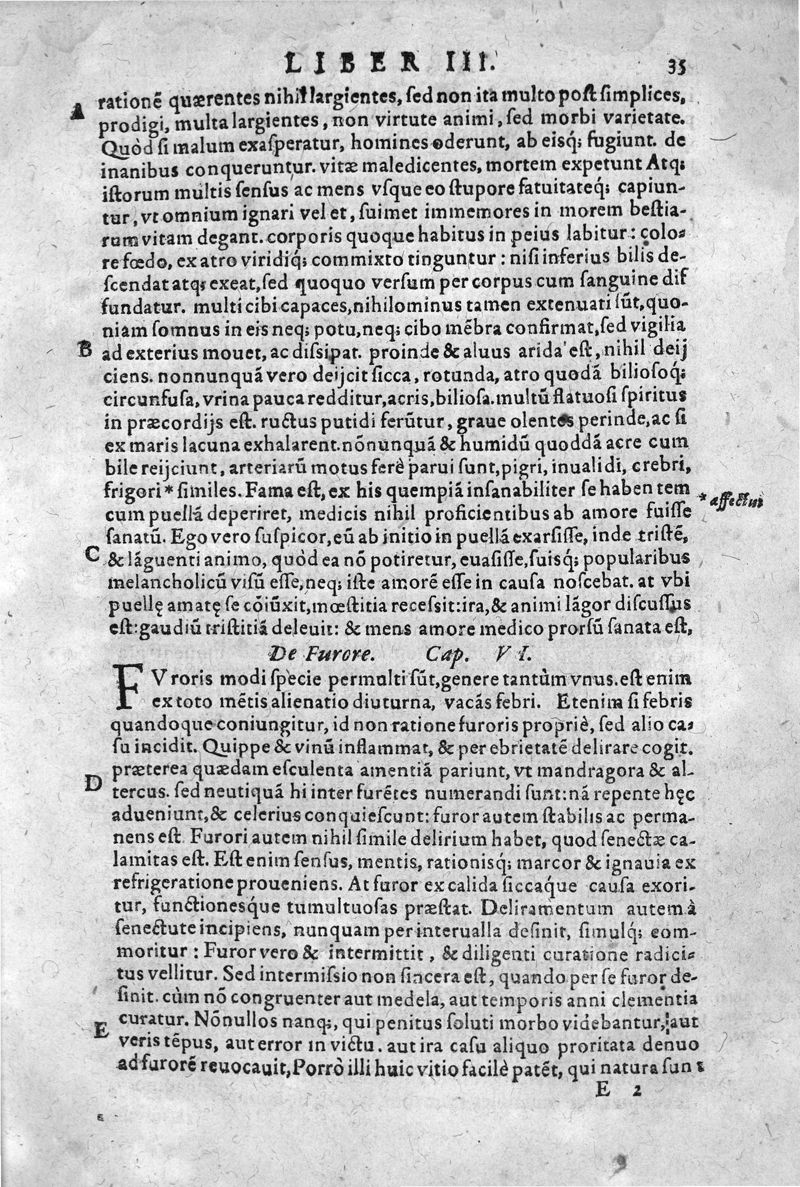 LIBER III. 35
A rationē quærentes nihil largientes, sed non ita multo post simplices,
prodigi, multa largientes, non virtute animi, sed morbi varietate.
Quòd si malum exasperatur, homines oderunt, ab eisq; fugiunt. de
inanibus conqueruntur. vitæ maledicentes, mortem expetunt Atq;
istorum multis sensus ac mens vsque eo stupore fatuitateq; capiun-
tur, vt omnium ignari vel et, suimet immemores in morem bestia-
rum vitam degant. corporis quoque habitus in peius labitur: colo-
re fœdo, ex atro viridiq; commixto tinguntur: nisi inferius bilis de-
scendat atq; exeat, sed quoquo versum per corpus cum sanguine dif
fundatur. multi cibi capaces, nihilominus tamen extenuati sūt, quo-
niam somnus in eis neq; potu, neq; cibo mēbra confirmat, sed vigilia
B ad exterius mouet, ac dissipat. proinde & aluus arida est, nihil deij
ciens. nonnunquā vero deijcit sicca, rotunda, atro quodā biliosoq;
circunfusa, vrina pauca redditur, acris, biliosa. multū flatuosi spiritus
in præcordijs est. ructus putidi ferūtur, graue olentes perinde, ac si
ex maris lacuna exhalarent. nōnunquā & humidū quoddā acre cum
bile reijciunt, arteriarū motus ferè parui sunt, pigri, inualidi, crebri,
frigori * similes. Fama est, ex his quempiā insanabiliter se haben tem
* affectui
cum puellā deperiret, medicis nihil proficientibus ab amore fuisse
sanatū. Ego vero suspicor, eū ab initio in puellā exarsisse, inde tristē,
C & lāguenti animo, quòd ea nō potiretur, euasisse, suisq; popularibus
melancholicū visū esse, neq; iste amorē esse in causa noscebat. at vbi
puellę amatę se cōiūxit, mœstitia recessit: ira, & animi lāgor discussus
est: gaudiū tristitiā deleuit: & mens amore medico prorsū sanata est,
De Furore. Cap. VI.
FVroris modi specie permulti sūt, genere tantùm vnus. est enim
ex toto mētis alienatio diuturna, vacās febri. Etenim si febris
quandoque coniungitur, id non ratione furoris propriè, sed alio ca-
su incidit. Quippe & vinū inflammat, & per ebrietatē delirare cogit.
præterea quædam esculenta amentiā pariunt, vt mandragora & al-
D tercus. sed neutiquā hi inter furētes numerandi sunt: nā repente hęc
adueniunt, & celerius conquiescunt: furor autem stabilis ac perma-
nens est. Furori autem nihil simile delirium habet, quod senectæ ca-
lamitas est. Est enim sensus, mentis, rationisq; marcor & ignauia ex
refrigeratione proueniens. At furor ex calida siccaque causa exori-
tur, functionesque tumultuosas præstat. Deliramentum autem à
senectute incipiens, nunquam per interualla desinit, simulq; com-
moritur: Furor vero & intermittit, & diligenti curatione radici-
tus vellitur. Sed intermissio non sincera est, quando per se furor de-
sinit. cùm nō congruenter aut medela, aut temporis anni clementia
E curatur. Nōnullos nanq;, qui penitus soluti morbo videbantur, aut
veris tēpus, aut error in victu. aut ira casu aliquo proritata denuo
ad furorē reuocauit, Porrò illi huic vitio facilè patēt, qui natura sunt
E 2